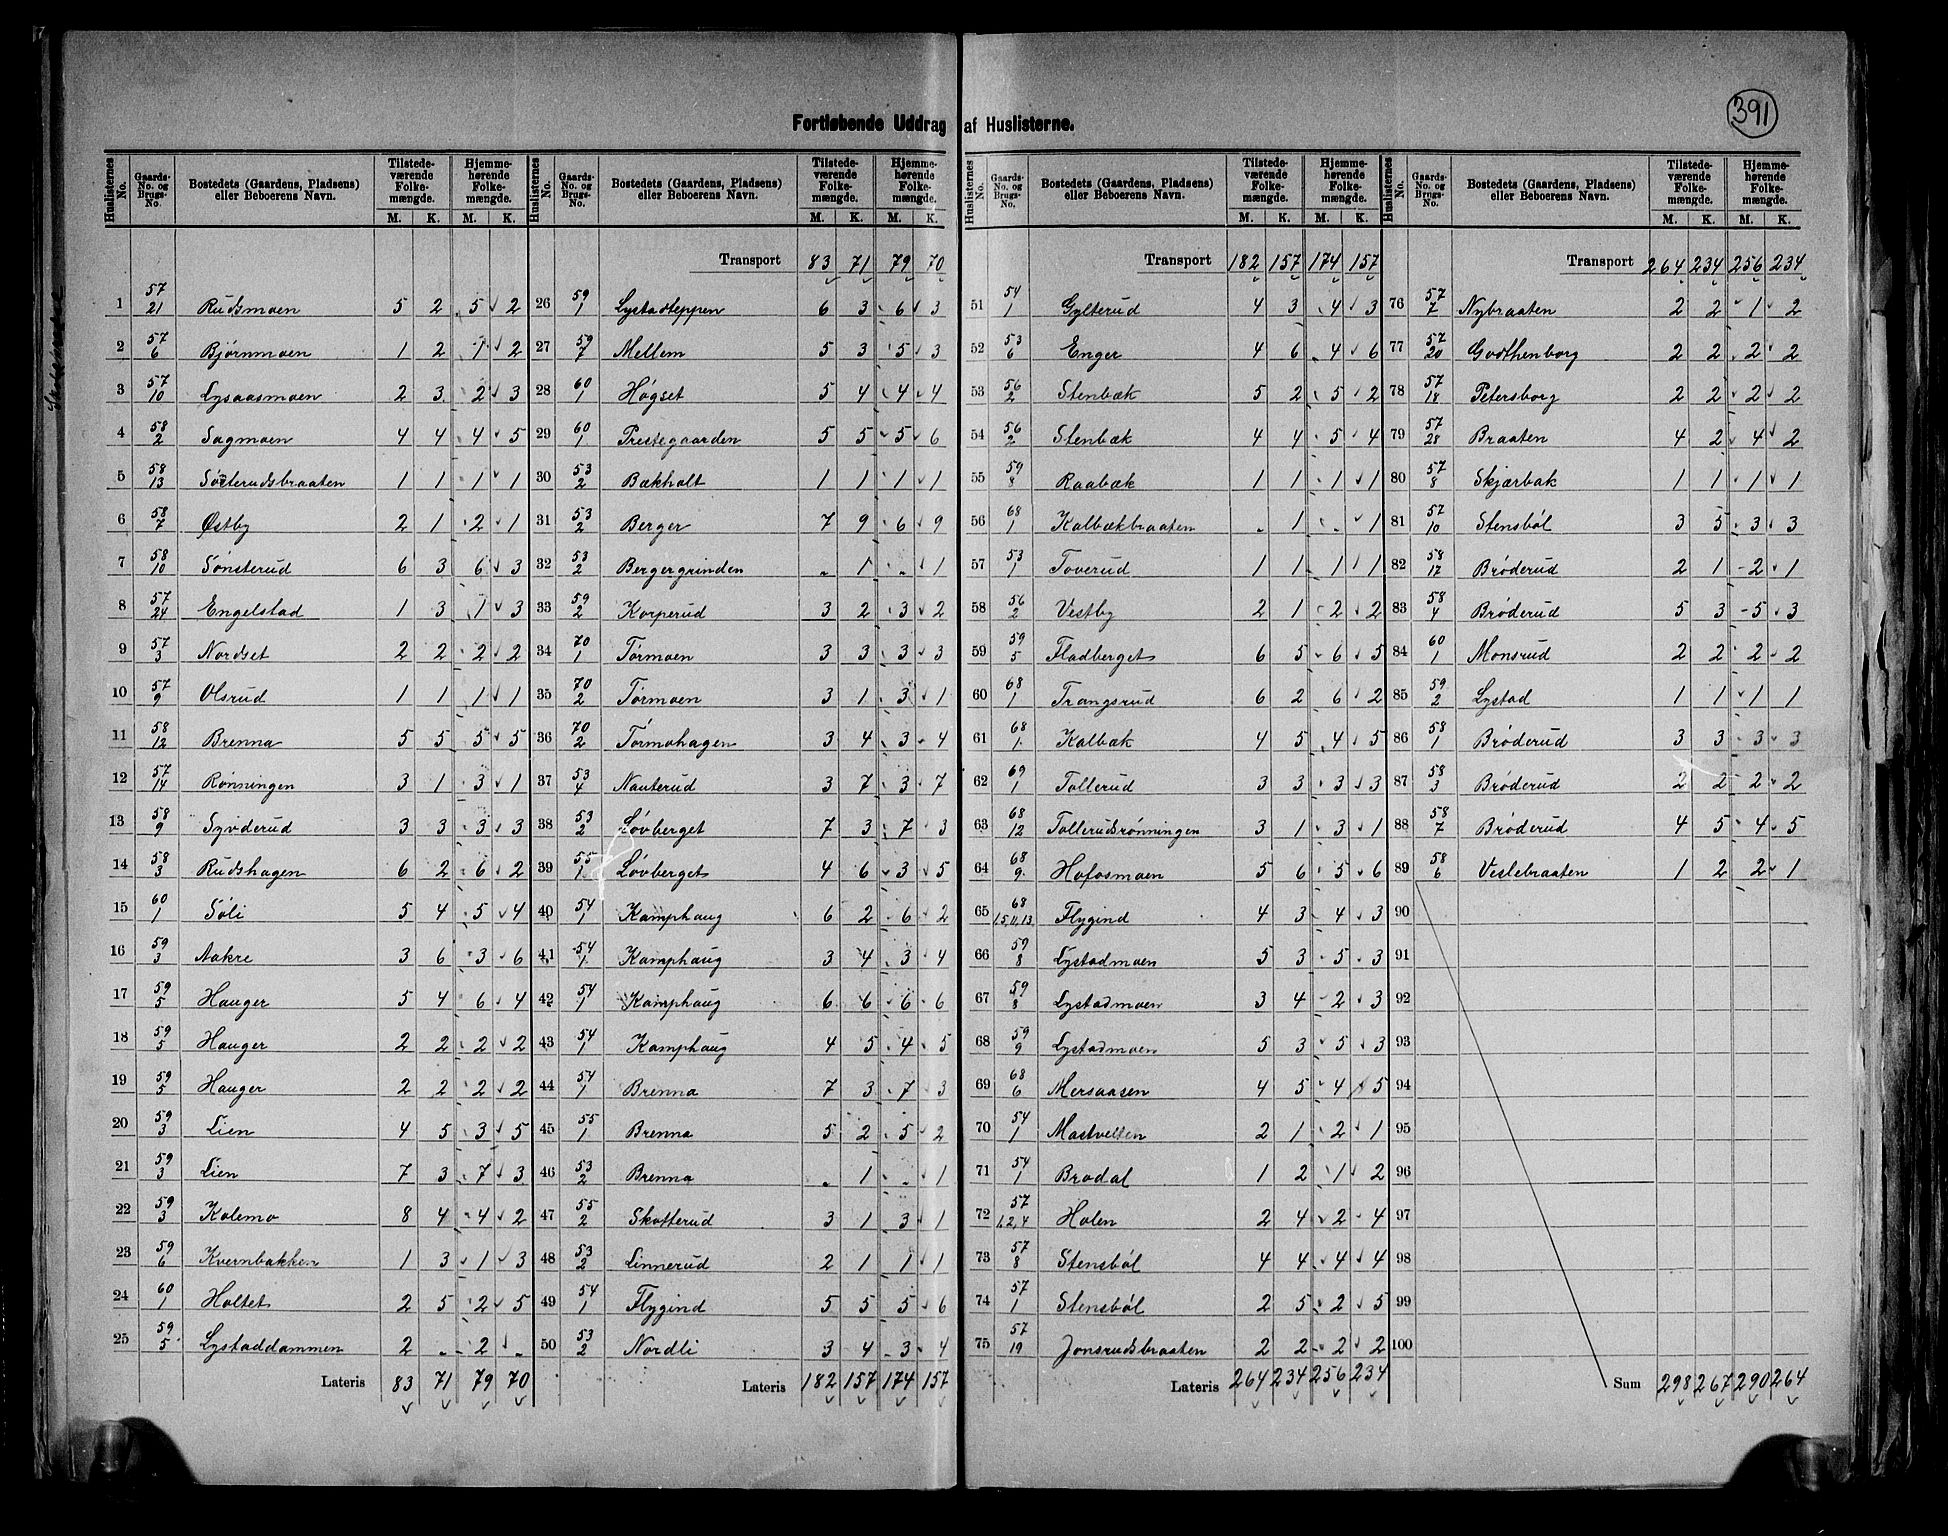 391
Fortløbende Uddrag af Huslisterne.
Huslisternes No. | Gaards-No. og Brugs-No. | Bostedets (Gaardens, Pladsens) eller Beboerens Navn. | Tilstedeværende Folkemængde. M. K. | Hjemmehørende Folkemængde. M. K.
1 57/21 Rudsmoen 5 2 5 2
2 57/6 Bjørnmoen 1 2 1 2
3 57/10 Lysaasmoen 2 3 2 3
4 58/2 Sagmoen 4 4 4 5
5 58/13 Sösterudsbraaten 1 1 1 1
6 58/7 Østby 2 1 2 1
7 58/10 Sönsterud 6 3 6 3
8 57/24 Engelstad 1 3 1 3
9 57/3 Nordset 2 2 2 2
10 57/9 Olsrud 1 1 1 1
11 58/12 Brenna 5 5 5 5
12 57/14 Rønningen 3 1 3 1
13 58/9 Synderud 3 3 3 3
14 58/3 Rudshagen 6 2 6 2
15 60/1 Søli 5 4 5 4
16 59/3 Aakre 3 6 3 6
17 59/5 Hauger 5 4 6 4
18 59/5 Hauger 2 2 2 2
19 59/5 Hauger 2 2 2 2
20 59/3 Lien 4 5 3 5
21 59/3 Lien 7 3 7 3
22 59/3 Kolemo 8 4 4 2
23 59/6 Kvernbakken 1 3 1 3
24 60/1 Holtet 2 5 2 5
25 59/5 Lystaddammen 2 - 2 -
Lateris 83 71 79 70
Huslisternes No. | Gaards-No. og Brugs-No. | Bostedets (Gaardens, Pladsens) eller Beboerens Navn. | Tilstedeværende Folkemængde. M. K. | Hjemmehørende Folkemængde. M. K.
Transport 83 71 79 70
26 59/1 Lystadteppen 6 3 6 3
27 59/7 Mellem 5 3 5 3
28 60/1 Høgset 5 4 4 4
29 60/1 Prestegaarden 5 5 5 6
30 53/2 Bækholt 1 1 1 1
31 53/2 Berger 7 9 6 9
32 53/2 Bergergrinden - 1 - 1
33 59/2 Korperud 3 2 3 2
34 70/1 Tørmoen 3 3 3 3
35 70/2 Tørmoen 3 1 3 1
36 70/2 Tórmohagen 3 4 3 4
37 53/4 Nauterud 3 7 3 7
38 53/2 Løvberget 7 3 7 3
39 55/1 Løvberget 4 6 3 5
40 54/1 Kamphaug 6 2 6 2
41 54/1 Kamphaug 3 4 3 4
42 54/1 Kamphaug 6 6 6 6
43 54/1 Kamphaug 4 5 4 5
44 54/1 Brenna 7 3 7 3
45 55/1 Brenna 5 2 5 2
46 53/2 Brenna - 1 - 1
47 55/2 Skotterud 3 1 3 1
48 53/2 Linnerud 2 1 1 1
49 54/1 Flygind 5 5 5 6
50 53/2 Nordli 3 4 3 4
Lateris 182 157 174 157
Huslisternes No. | Gaards-No. og Brugs-No. | Bostedets (Gaardens, Pladsens) eller Beboerens Navn. | Tilstedeværende Folkemængde. M. K. | Hjemmehørende Folkemængde. M. K.
Transport 182 157 174 157
51 54/1 Gylterud 4 3 4 3
52 53/6 Enger 4 6 4 6
53 56/2 Stenbæk 5 2 5 2
54 56/2 Stenbæk 4 4 5 4
55 59/8 Raabæk 1 1 1 1
56 68/1 Kalbækbraaten - 1 - 1
57 53/1 Toverud 1 1 1 1
58 56/2 Vestby 2 1 2 2
59 59/5 Fladberget 6 5 6 5
60 68/1 Trangsrud 6 2 6 2
61 68/1 Kalbæk 4 5 4 5
62 69/1 Tollerud 3 3 3 3
63 68/12 Tollerudsrønningen 3 1 3 1
64 68/9 Hofosmoen 5 6 5 6
65 68/1,5,11,13 Flygind 4 3 4 3
66 59/8 Lystadmoen 5 3 5 3
67 59/8 Lystadmoen 3 4 2 3
68 59/9 Lystadmoen 5 3 5 3
69 68/6 Mersaasen 4 5 4 5
70 54/1 Mastvelten 2 1 2 1
71 54/1 Brodal 1 2 1 2
72 57/1,2,4 Holen 2 4 2 4
73 57/8 Stensból 4 4 4 4
74 57/1 Stensból 2 5 2 5
75 57/19 Jonsrudsbraaten 2 2 2 2
Lateris 264 234 256 234
Huslisternes No. | Gaards-No. og Brugs-No. | Bostedets (Gaardens, Pladsens) eller Beboerens Navn. | Tilstedeværende Folkemængde. M. K. | Hjemmehørende Folkemængde. M. K.
Transport 264 234 256 234
76 57/7 Nybraaten 2 2 1 2
77 57/20 Godthenborg 2 2 2 2
78 57/18 Petersborg 2 2 2 2
79 57/28 Braaten 4 2 4 2
80 57/8 Skjærbak 1 1 1 1
81 57/10 Stensból 3 5 3 3
82 58/17 Bróderud 2 1 2 1
83 58/4 Bróderud 5 3 5 3
84 60/1 Monsrud 2 2 2 2
85 59/2 Lystad 1 1 1 1
86 58/1 Bróderud 3 3 3 3
87 58/3 Bróderud 2 2 2 2
88 58/7 Bróderud 4 5 4 5
89 58/6 Veslebraaten 1 2 2 1
90
91
92
93
94
95
96
97
98
99
100
Sum 298 267 290 264